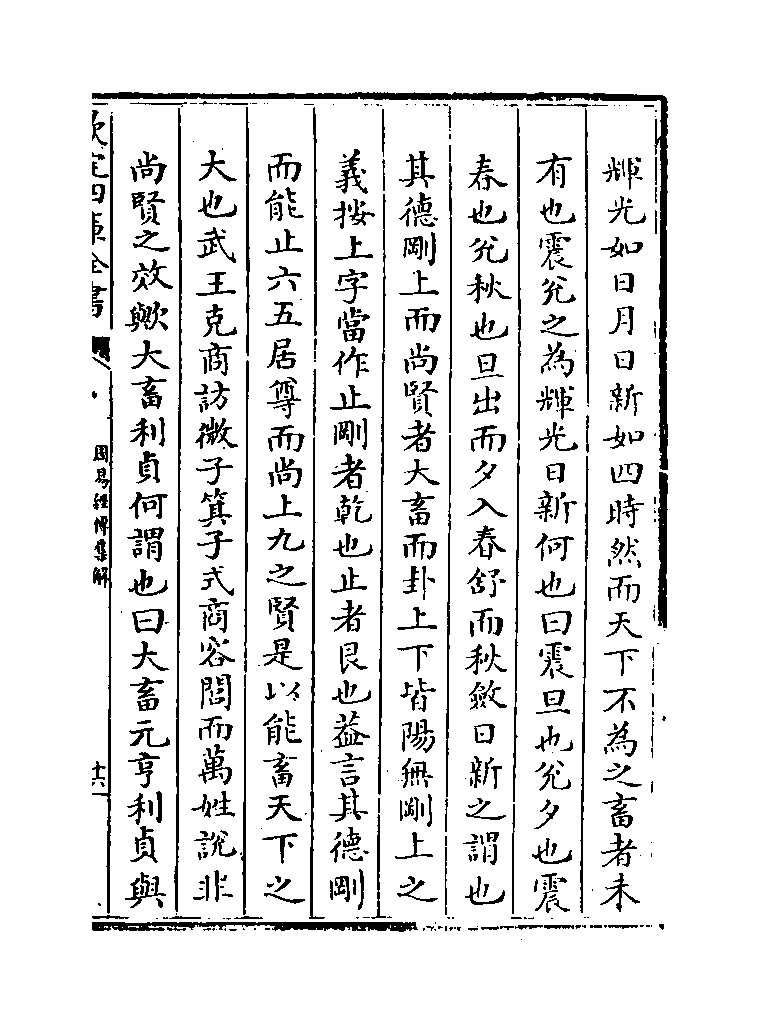 輝光如日月日新如四時然而天下不為之畜者未
有也震兊之為輝光日新何也曰震旦也兊夕也震
春也兊秋也旦出而夕入春舒而秋斂日新之謂也
其德剛上而尚賢者大畜而卦上下皆陽無剛上之
義按上字當作止剛者乾也止者艮也葢言其德剛
而能止六五居尊而尚上九之賢是以能畜天下之
大也武王克商訪微子箕子式商容閭而萬姓說非
尚賢之效歟大畜利貞何謂也曰大畜元亨利貞與
欽定四庫全書
周易經傳集解
十六